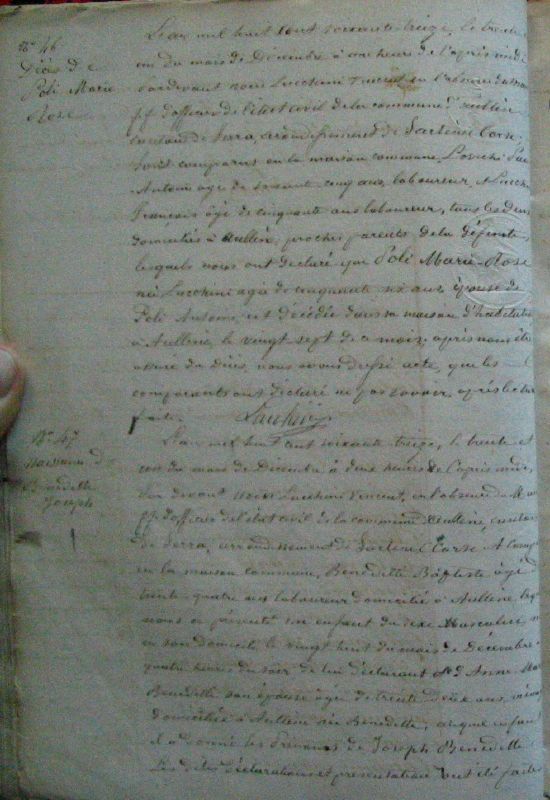 N° 46
Décès de
Poli Marie
Rose
L'an mil huit cent soixante treize, le trente
un du mois de Décembre à une heure de l'après midi
pardevant nous Lucchini Vincent en l'absence du maire
ff d'officier de l'état civil de la commune d'Aullène
canton de Serra, arrondissement de Sartène Corse
sont comparus en la maison commune,
Antoine âgé de soixante cinq ans, laboureur, et Lucchini
François âgé de cinquante ans laboureur, tous les deux
domiciliés à Aullène, proches parents de la défunte
lesquels nous ont déclaré que Poli Marie-Rose
née Lucchini agée de cinquante six ans, épouse de
Poli Antoine, est décédée dans sa maison d'habitation
à Aullène, le vingt sept de ce mois après nous être
assuré du décès, nous avons dressé acte, que les
comparants ont déclaré ne pas savoir, après lecture
faite. Lucchini
N° 47
Naissance de
Benedetti
Joseph
L'an mil huit cent soixante treize, le trente et
un du mois de Décembre à deux heures de l'après midi,
Par devant nous Lucchini Vincent, en l'absence du M
ff d'officier de l'état civil de la commune d'Aullène, canton
de Serra, arrondissement de Sartène Corse A comparu
en la maison commune, Benedetti Baptiste âgé
trente quatre ans laboureur domicilié à Aullène
nous a présenté un enfant du sexe Masculin, né
en son domicile le vingt huit du mois de Décembre
quatre heures du soir de lui déclarant et d'Anne Marie
Benedetti son épouse âgée de trente deux ans,
domiciliée à Aullène née Benedetti, auquel enfant
il a donné les Prénoms de Joseph Benedetti
Les dites déclaration et présentation ont été faites